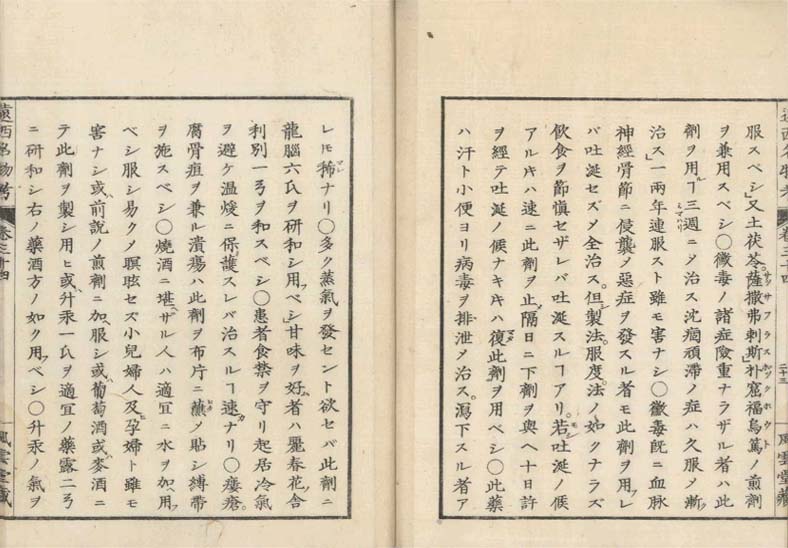 遠西名物考 卷三十四 二十三 風雲堂藏
服スベシ」又土茯苓。薩撒弗剌斯」朴窟福烏篤ノ煎劑
ヲ兼用スベシ〇黴毒ノ諸症險重ナラザル者ハ此
劑ヲ用ルヿ三週ニメ治ス沈痼頑滯ノ症ハ久服メ漸ク
治ス」一兩年連服スト雖モ害ナシ〇黴毒既ニ血脉
神經骨節ニ侵襲メ惡症ヲ發スル者モ此劑ヲ用レ
バ吐涎セズメ全治ス。但製法。服度。法ノ如クナラズ
飲食ヲ節愼セザレバ吐涎スルヿアリ。若吐涎ノ候
アルキハ速ニ此劑ヲ止メ隔日ニ下劑ヲ與ヘ十日許
ヲ經テ吐涎ノ候ナキキハ復此劑ヲ用ベシ〇此藥
ハ汗ト小便ヨリ病毒ヲ排泄メ治ス。瀉下スル者ア
レモ稀ナリ〇多ク蒸氣ヲ發セント欲セバ此劑ニ
龍腦六氏ヲ研和シ用ベシ」甘味ヲ好者ハ麗春花舍
利別一弓ヲ和スベシ〇患者食禁ヲ守リ起居冷氣
ヲ避ケ温煖ニ保護スレバ治スルヿ速ナリ〇瘻瘡。
腐骨疽ヲ兼ル潰瘍ハ此劑ヲ布片ニ蘸メ貼シ縛帶
ヲ施スベシ〇燒酒ニ堪ザル人ハ適宜ニ水ヲ加用
ベシ服シ易クメ瞑眩セズ小兒婦人及孕婦ト雖モ
害ナシ或前説ノ煎劑ニ加服シ或葡萄酒或麥酒ニ
テ此劑ヲ製シ用ヒ或升汞一氏ヲ適宜ノ藥露二弓
ニ研和シ右ノ藥酒方ノ如ク用ベシ〇升汞ノ氣ヲ
遠西名物考 卷三十四 風雲堂藏